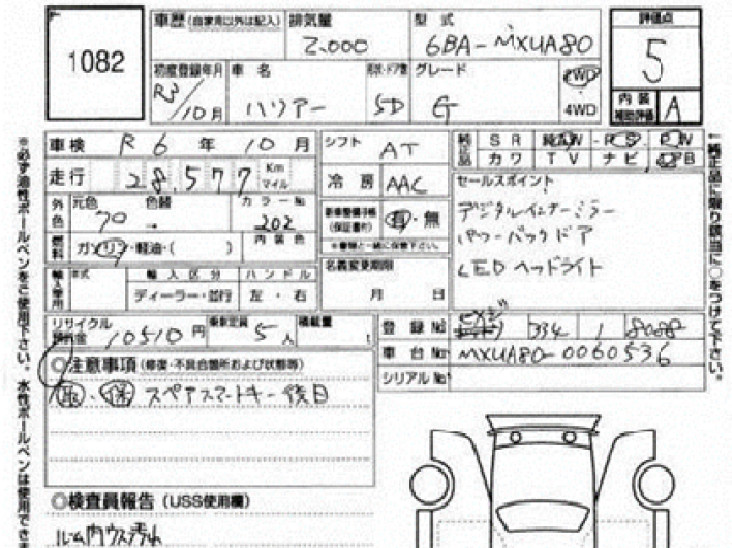 1082
車歴(自家用以外は記入) 排気量 型式 評価点
2,000 6BA-MXUA80 5
初度登録年月 車名 形状・ドア数 グレード 2WD
R3/10月 ハリアー 5D G 4WD
内装補助評価 A
車検 R 6 年 10 月 シフト AT
純正品 SR 純正AW
カワ TV ナビ
走行 28,577 Km マイル
冷房 AAC
セールスポイント
デジタルインナーミラー
パワーバックドア
LEDヘッドライト
外色 元色 色替 カラーNo
202
(保証書付) 有・無
燃料 ガソリン・軽油・( ) 内装色
名義変更期限
月 日
輸入車用 年式 輸入区分 ハンドル
ディーラー・並行 左・右
リサイクル預託金 10510円 乗車定員 5人 積載量 t
登録No 334 1 8088
車台No MXUA80-0060536
シリアルNo
◎注意事項(修復・不具合箇所および状態等)
取・保 スペアスマートキー後日
◎検査員報告(USS使用欄)
※必ず油性ボールペンをご使用下さい。水性ボールペンは使用できま